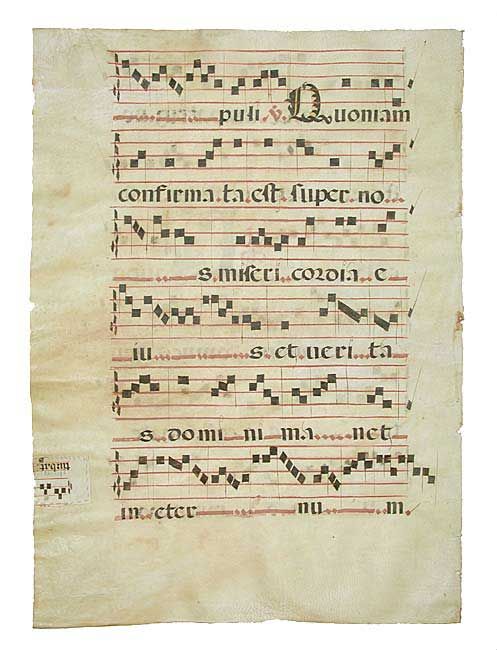 puli ℣. Quoniam
confirma..ta..est..super..no...
s.miseri..cordia..e
iu s.et.ueri..ta
s..domi..ni..ma...net
in.eter nu m.